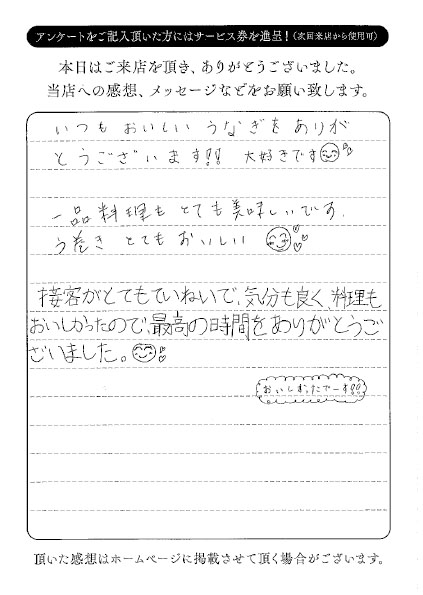 アンケートをご記入頂いた方にはサービス券を進呈！（次回来店から使用可）
本日はご来店を頂き、ありがとうございました。
当店への感想、メッセージなどをお願い致します。
いつも おいしい うなぎを ありが
とうございます!! 大好きです
一品料理も とても 美味しいです.
う巻き とても おいしい
接客がとてもていねいで、気分も良く、料理も
おいしかったので、最高の時間をありがとうご
ざいました。
おいしかったでーす!!
頂いた感想はホームページに掲載させて頂く場合がございます。